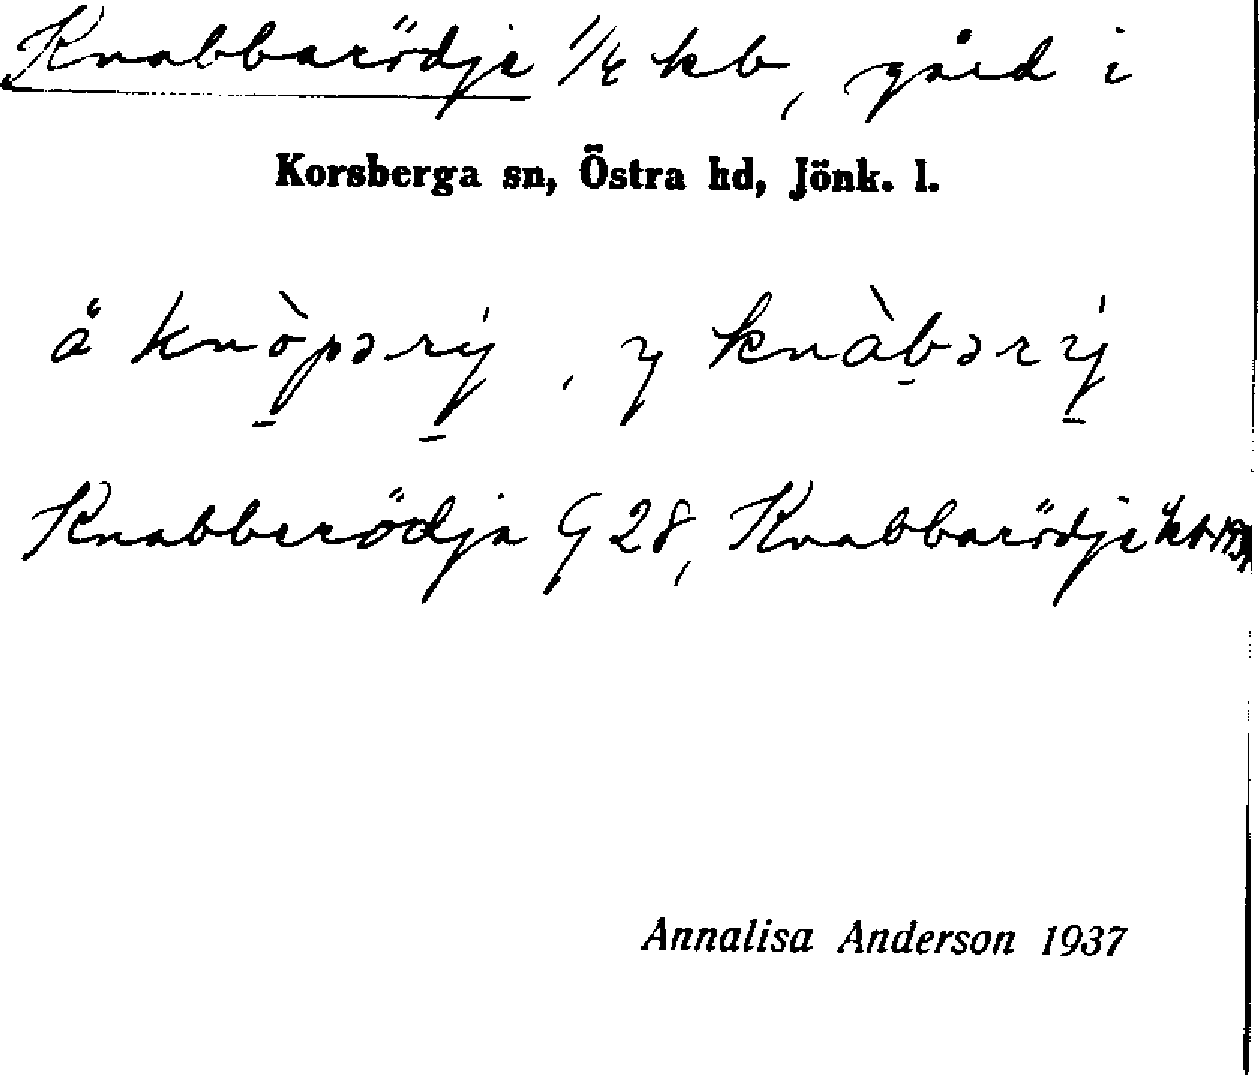 Knabbarödje 1/4 kb, gård i
Korsberga sn, Östra hd, Jönk. l.
å knòpərý, y knàbərý
Knabberödja G 28, Knabbarödje kb
Annalisa Anderson 1937